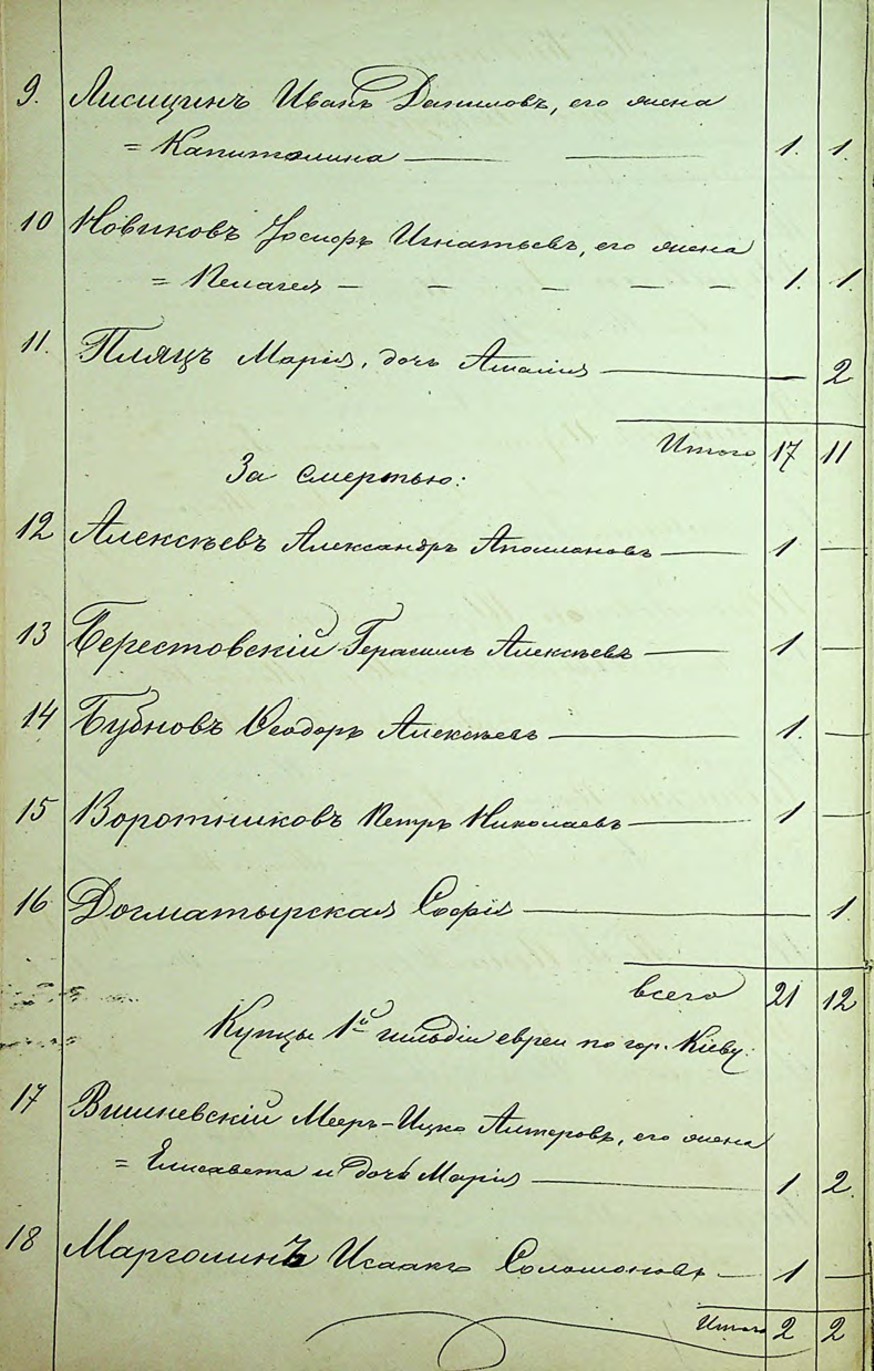 9. Лисицинъ Иванъ Даниловъ, его жена
= Капитолина — — 1. 1.
10 Новиковъ Іосифъ Игнатьевъ, его жена
= Пелагея — — — — — 1. 1.
11. Пляцъ Марія, дочь Амалія — 2
Итого 17 11
За смертью:
12 Алексѣевъ Александръ Аполлоновъ — 1 —
13 Берестовскій Герасимъ Алексѣевъ — 1 —
14 Бубновъ Ѳеодоръ Алексѣевъ — 1. —
15 Воротниковъ Петръ Николаевъ — 1 —
16 Догматырская Софія — 1
всего 21 12
Купцы 1й гильдіи евреи по гор. Кіеву:
17 Вишневскій Мееръ-Ицко Алтеровъ, его жена
= Елисавета и дочь Марія — 1 2.
18 Марголинъ Исаакъ Соломоновъ — 1 —
Итого 2 2